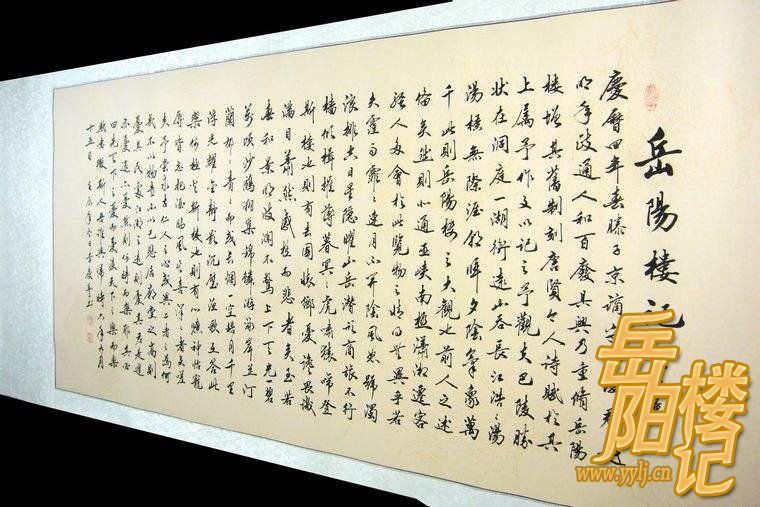 岳陽樓記
慶曆四年春滕子京謫
明年政通人和百廢具興乃重脩岳陽
樓增其舊制刻唐賢今人詩賦於其
上屬予作文以記之予觀夫巴陵勝
狀在洞庭一湖銜遠山吞長江浩浩湯
湯橫無際涯朝暉夕陰氣象萬
千此則岳陽樓之大觀也前人之述
備矣然則北通巫峽南極瀟湘遷客
騷人多會於此覽物之情得無異乎若
夫霪雨霏霏連月不開陰風怒號濁
浪排空日星隱曜山岳潛形商旅不行
檣傾楫摧薄暮冥冥虎嘯猿啼登
斯樓也則有去國懷鄉憂讒畏譏
滿目蕭然感極而悲者矣至若
春和景明波瀾不驚上下天光一碧
萬頃沙鷗翔集錦鱗游泳岸芷汀
蘭郁郁青青而或長煙一空皓月千里
浮光耀金靜影沉璧漁歌互答此
樂何極登斯樓也則有心曠神怡寵
辱皆忘把酒臨風其喜洋洋者矣嗟
夫予嘗求古仁人之心或異二者之為何
哉不以物喜不以己悲居廟堂之高則
憂其民處江湖之遠則憂其君是進
亦憂退亦憂然則何時而樂耶其必
曰先天下之憂而憂後天下之樂而樂
歟噫微斯人吾誰與歸時六年九月
十五日
岳阳楼记
www.yylj.cn